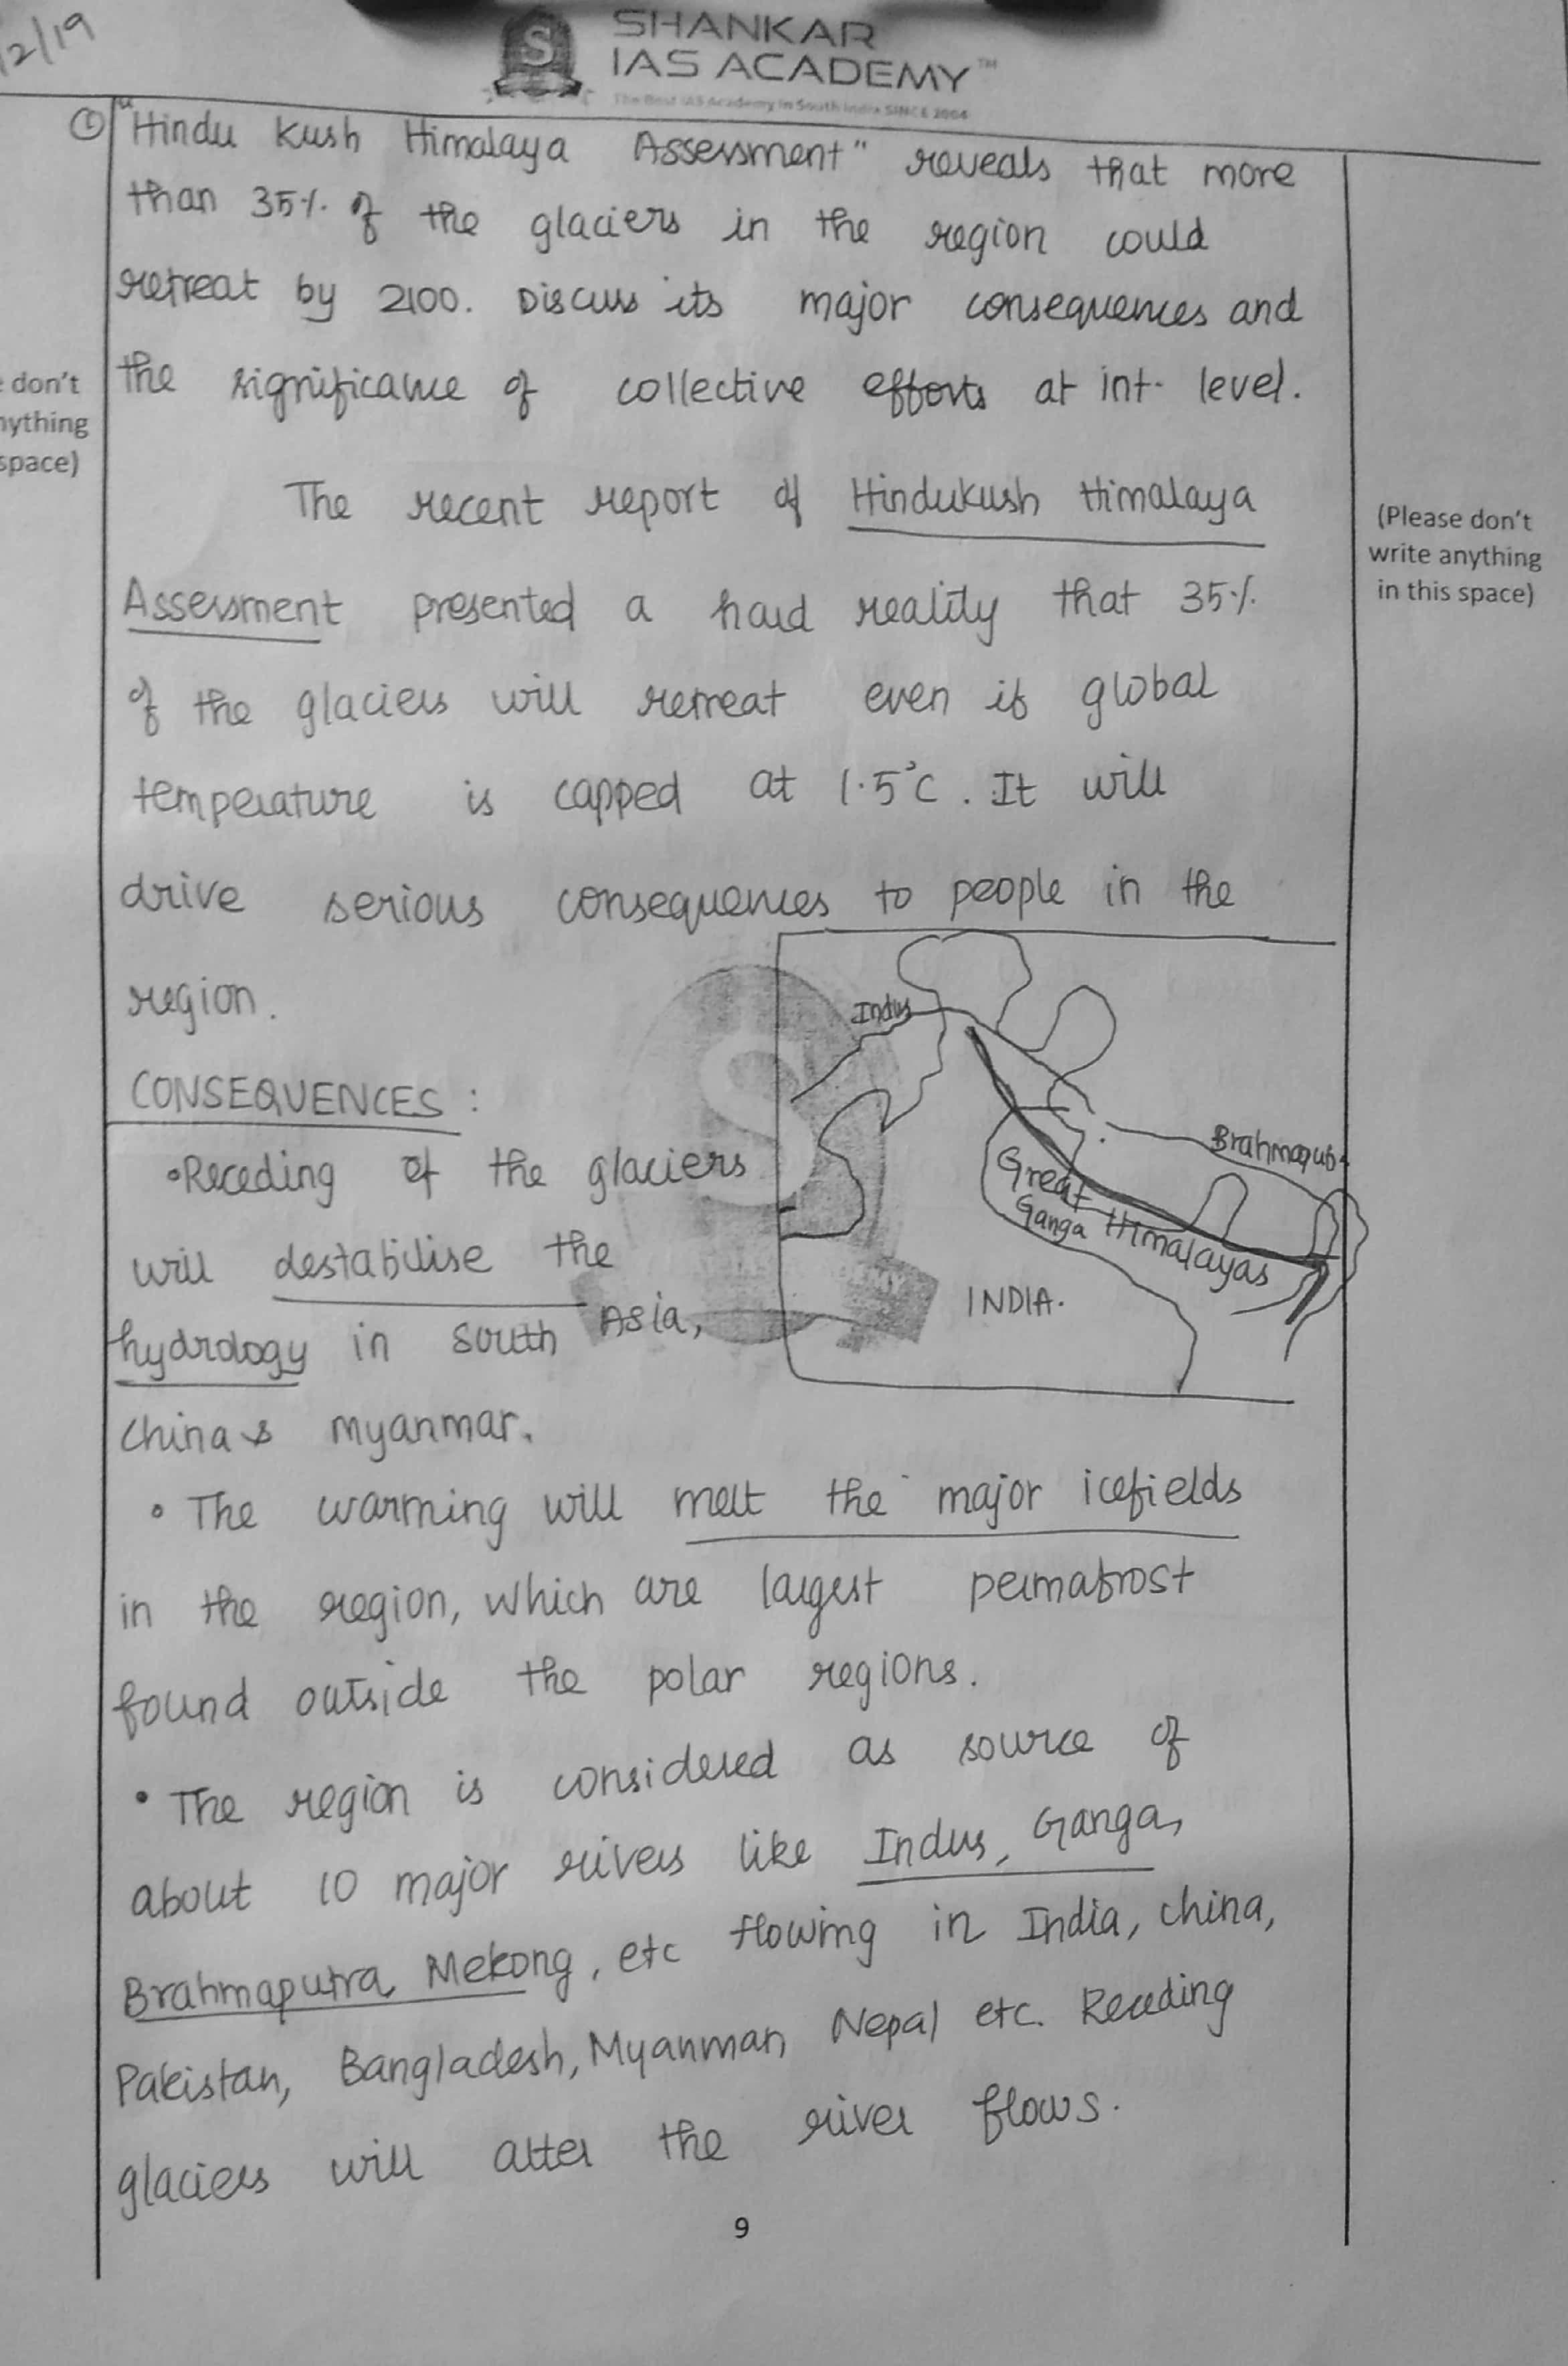 12/19
SHANKAR
IAS ACADEMY™
The Best IAS Academy in South India SINCE 2004
① "Hindu Kush Himalaya Assessment" reveals that more
than 35% of the glaciers in the region could
retreat by 2100. Discuss its major consequences and
the significance of collective efforts at int. level.
don't
nything
space)
The recent report of Hindukush Himalaya
(Please don't
write anything
in this space)
Assessment presented a hard reality that 35%
of the glaciers will retreat even if global
temperature is capped at 1.5°C. It will
drive serious consequences to people in the
region.
Indus
Brahmaput
Great Himalayas
Ganga
INDIA.
CONSEQUENCES :
• Receding of the glaciers
will destabilise the
hydrology in South Asia,
China & Myanmar.
• The warming will melt the major icefields
in the region, which are largest permafrost
found outside the polar regions.
• The region is considered as source of
about 10 major rivers like Indus, Ganga,
Brahmaputra, Mekong, etc flowing in India, China,
Pakistan, Bangladesh, Myanmar, Nepal etc. Receding
glaciers will alter the river flows.
9